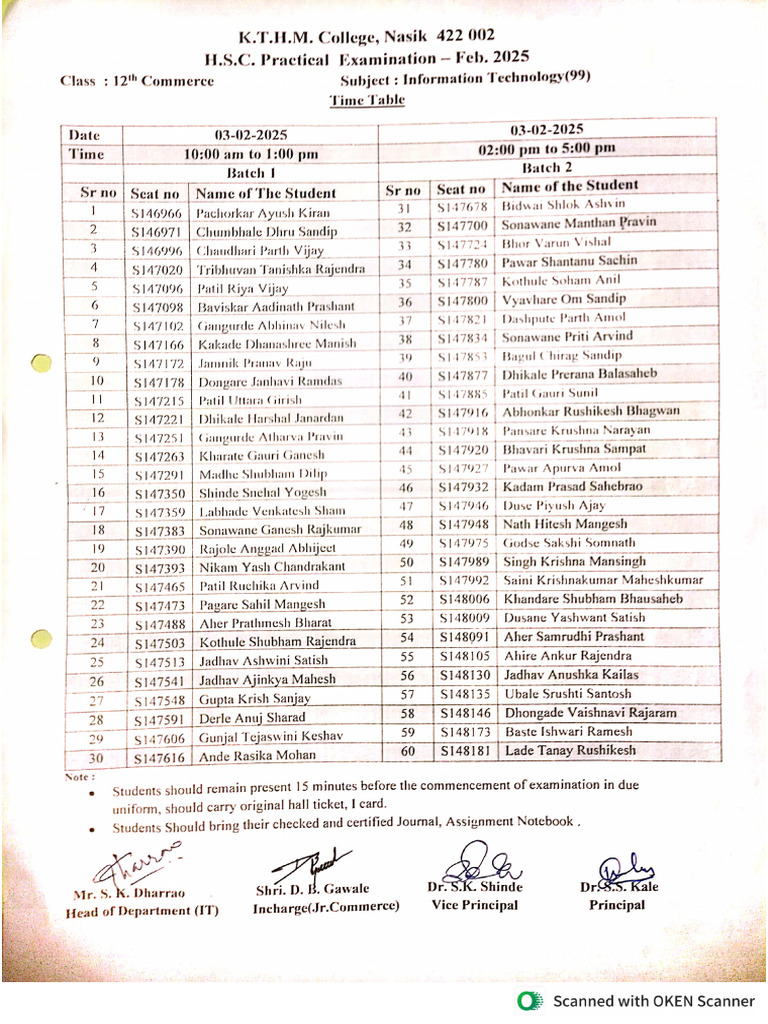 K.T.H.M. College, Nasik 422 002
H.S.C. Practical Examination – Feb. 2025
Class : 12th Commerce Subject : Information Technology(99)
Time Table
Date 03-02-2025 03-02-2025
Time 10:00 am to 1:00 pm 02:00 pm to 5:00 pm
Batch 1 Batch 2
Sr no Seat no Name of The Student Sr no Seat no Name of the Student
1 S146966 Pachorkar Ayush Kiran 31 S147678 Bidwai Shlok Ashvin
2 S146971 Chumbhale Dhru Sandip 32 S147700 Sonawane Manthan Pravin
3 S146996 Chaudhari Parth Vijay 33 S147724 Bhor Varun Vishal
4 S147020 Tribhuvan Tanishka Rajendra 34 S147780 Pawar Shantanu Sachin
5 S147096 Patil Riya Vijay 35 S147787 Kothule Soham Anil
6 S147098 Baviskar Aadinath Prashant 36 S147800 Vyavhare Om Sandip
7 S147102 Gangurde Abhinav Nilesh 37 S147821 Dashpute Parth Amol
8 S147166 Kakade Dhanashree Manish 38 S147834 Sonawane Priti Arvind
9 S147172 Jamnik Pranav Raju 39 S147853 Bagul Chirag Sandip
10 S147178 Dongare Janhavi Ramdas 40 S147877 Dhikale Prerana Balasaheb
11 S147215 Patil Uttara Girish 41 S147885 Patil Gauri Sunil
12 S147221 Dhikale Harshal Janardan 42 S147916 Abhonkar Rushikesh Bhagwan
13 S147251 Gangurde Atharva Pravin 43 S147918 Pansare Krushna Narayan
14 S147263 Kharate Gauri Ganesh 44 S147920 Bhavari Krushna Sampat
15 S147291 Madhe Shubham Dilip 45 S147927 Pawar Apurva Amol
16 S147350 Shinde Snehal Yogesh 46 S147932 Kadam Prasad Sahebrao
17 S147359 Labhade Venkatesh Sham 47 S147946 Duse Piyush Ajay
18 S147383 Sonawane Ganesh Rajkumar 48 S147948 Nath Hitesh Mangesh
19 S147390 Rajole Anggad Abhijeet 49 S147975 Godse Sakshi Somnath
20 S147393 Nikam Yash Chandrakant 50 S147989 Singh Krishna Mansingh
21 S147465 Patil Ruchika Arvind 51 S147992 Saini Krishnakumar Maheshkumar
22 S147473 Pagare Sahil Mangesh 52 S148006 Khandare Shubham Bhausaheb
23 S147488 Aher Prathmesh Bharat 53 S148009 Dusane Yashwant Satish
24 S147503 Kothule Shubham Rajendra 54 S148091 Aher Samrudhi Prashant
25 S147513 Jadhav Ashwini Satish 55 S148105 Ahire Ankur Rajendra
26 S147541 Jadhav Ajinkya Mahesh 56 S148130 Jadhav Anushka Kailas
27 S147548 Gupta Krish Sanjay 57 S148135 Ubale Srushti Santosh
28 S147591 Derle Anuj Sharad 58 S148146 Dhongade Vaishnavi Rajaram
29 S147606 Gunjal Tejaswini Keshav 59 S148173 Baste Ishwari Ramesh
30 S147616 Ande Rasika Mohan 60 S148181 Lade Tanay Rushikesh
Note :
• Students should remain present 15 minutes before the commencement of examination in due
uniform, should carry original hall ticket, I card.
• Students Should bring their checked and certified Journal, Assignment Notebook .
Mr. S. K. Dharrao Shri. D. B. Gawale Dr. S.K. Shinde Dr. S.S. Kale
Head of Department (IT) Incharge(Jr.Commerce) Vice Principal Principal
Scanned with OKEN Scanner